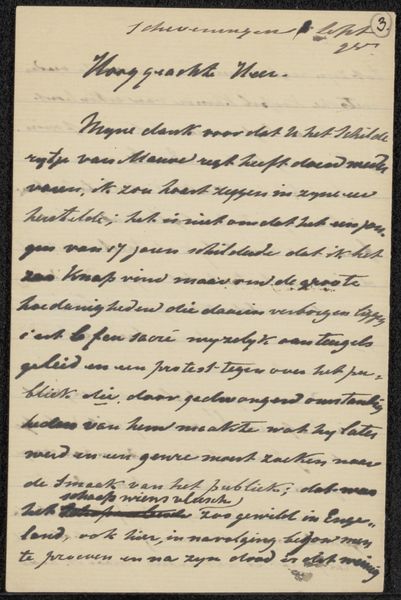 Scheveningen Sept
3
95
Hooggeachte Heer.
Myne dank voor dat U het schilde
rytje van Mauve regt heeft doen weder
varen, ik zou haast zeggen in zyne eer
herstelde; het is niet omdat het een jon-
gen van 17 jaren schilderde dat ik het
zoo knap vind maar om de groote
hoedanigheden die daarin verborgen liggen
c'est le feu sacré aan teugels
geleid en een protest tegen over het pu-
bliek die door gedwongene omstandig
heden van hem maakte wat hy later
werd en een genre moest zoeken naar
de smaak van het publiek; dat was
schaap wiens vleesch
het zoo gewild in Enge-
land, ook hier, in navolging begon men
te proeven en na zyn dood is dat weinig